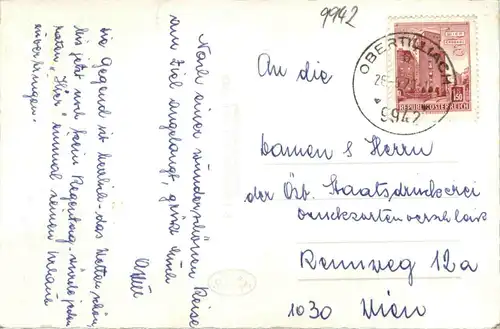 9942
OBERTILLIACH
9942
REPUBLIK ÖSTERREICH
1.50
Nach einer wunderschönen Reise
am Ziel angelangt, grüße Euch
die Gegend ist herrlich - das Wetter schön,
bis jetzt noch kein Regentag - würde jedem
raten, "Hier" einmal seinen Urlaub
zu verbringen.
An die
Damen & Herrn
der Öst. Staatsdruckerei
Druckzortenverschleiss
Rennweg 12a
1030 Wien